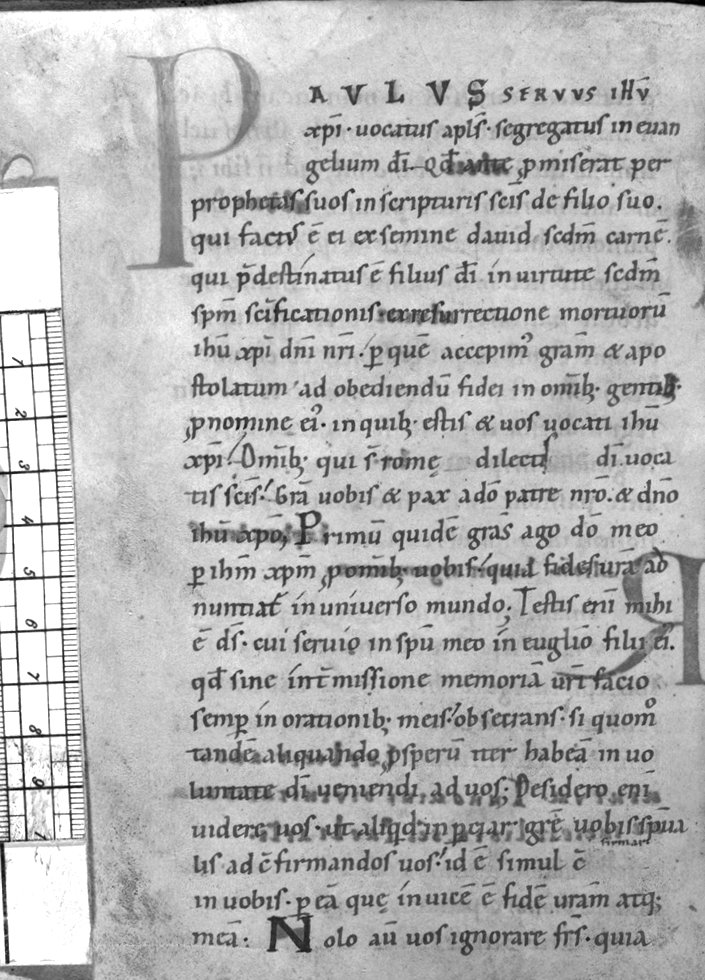 PAVLVS SERVVS IHV̄
xp̄i · uocatus apl̄s · segregatus in euan
gelium dī. Qd̄ ante p̱miserat per
prophetas suos in scripturis scīs de filio suo.
qui factus ē ei ex semine dauid scdm̄ carnē.
qui p̄destinatus ē filius dī in uirtute scdm̄
spm̄ scīficationis · ex resurrectione mortuorū
ihū xp̄i dn̄i nr̄i · ꝑ quē accepimꝰ gram̄ & apo
stolatum ad obediendū fidei in omībꝫ · gentibꝫ ·
ꝓ nomine eiꝰ · in quibꝫ · estis & uos uocati ihū
xp̄i · Omībꝫ · qui s̄ romę dilectis dī · uoca
tis scīs · Grā uobis & pax a dō patre nr̄o · & dn̄o
ihū xp̄o; Primū quidē gras̄ ago dō meo
ꝑ ihm̄ xp̄m ꝓ omībꝫ uobis · quia fides ur̄a ad
nuntiat̄ in uniuerso mundo; Testis enī mihi
ē ds̄ · cui seruio in spū meo in euglīo filii eiꝰ.
qd̄ sine int̄missione memoriā ur̄i facio
semꝑ in orationibꝫ · meis · obsecrans · si quom̊
tandē aliquando ꝓsperū iter habeā in uo
luntate dī ueniendi ad uos; Desidero enī
uidere uos · ut aliqd̄ inꝑciar · grē uobis spūa
lis ad c̄firmandos uos · id ē simul c̄
firmari
in uobis · ꝑ eā quę inuicē ē fidē uram̄ atqꝫ
meā · Nolo aū uos ignorare fr̄s · quia